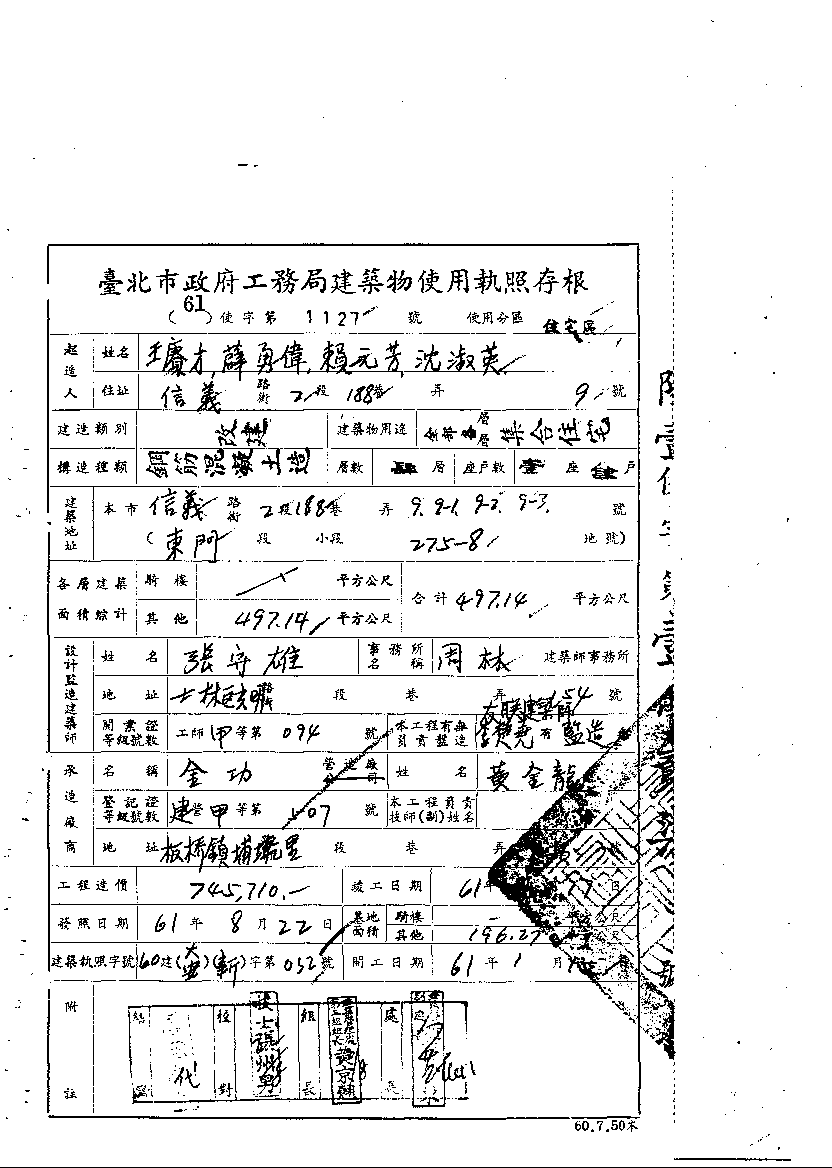 臺北市政府工務局建築物使用執照存根
(61)使字第 1127 號 使用分區 住宅區
起造人 姓名 王賡才,薛勇偉,賴元芳,沈淑英
住址 信義 路街 2 段 188巷 弄 9 號
建造類別 改建 建築物用途 全部各層層 集合住宅
構造種類 鋼筋混凝土造 層數 肆 層 座戶數 壹 座 肆 戶
建築地址 本市 信義 路街 2段188巷 弄 9. 9-1, 9-2. 9-3. 號
(東門 段 小段 275-8 地號)
各層建築面積綜計 騎樓 平方公尺 合計 497.14 平方公尺
其他 497.14 平方公尺
設計監造建築師 姓名 張守雄 事務所名稱 周林 建築師事務所
地址 士林 段 巷 弄 154 號
開業證等級號數 工師 甲 等第 094 號 本工程有無負責監造 有 監造
承造廠商 名稱 金功 營造廠公司 姓名 黃金龍
登記證等級號數 建營 甲 等第 507 號 本工程負責技師(副)姓名
地址 板橋鎮埔墘里 段 巷 弄 號
工程造價 745,710.- 竣工日期 61年 日
發照日期 61 年 8 月 22 日 基地面積 騎樓 - 平方公尺
其他 196.27 平方公尺
建築執照字號 60建(大安)(新)字第 032號 開工日期 61 年 1 月
附註 代 校對 技士 張州男 組長 處長
60.7.50本